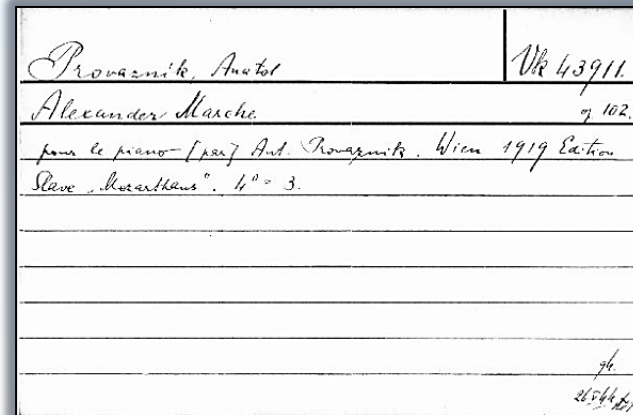 Provazník, Anatol
Vk 43911.
Alexander Marche.
op 102.
pour le piano [par] Ant. Provazník. Wien 1919 Edition
Slave „Mozarthaus“. 4° = 3.
gk.